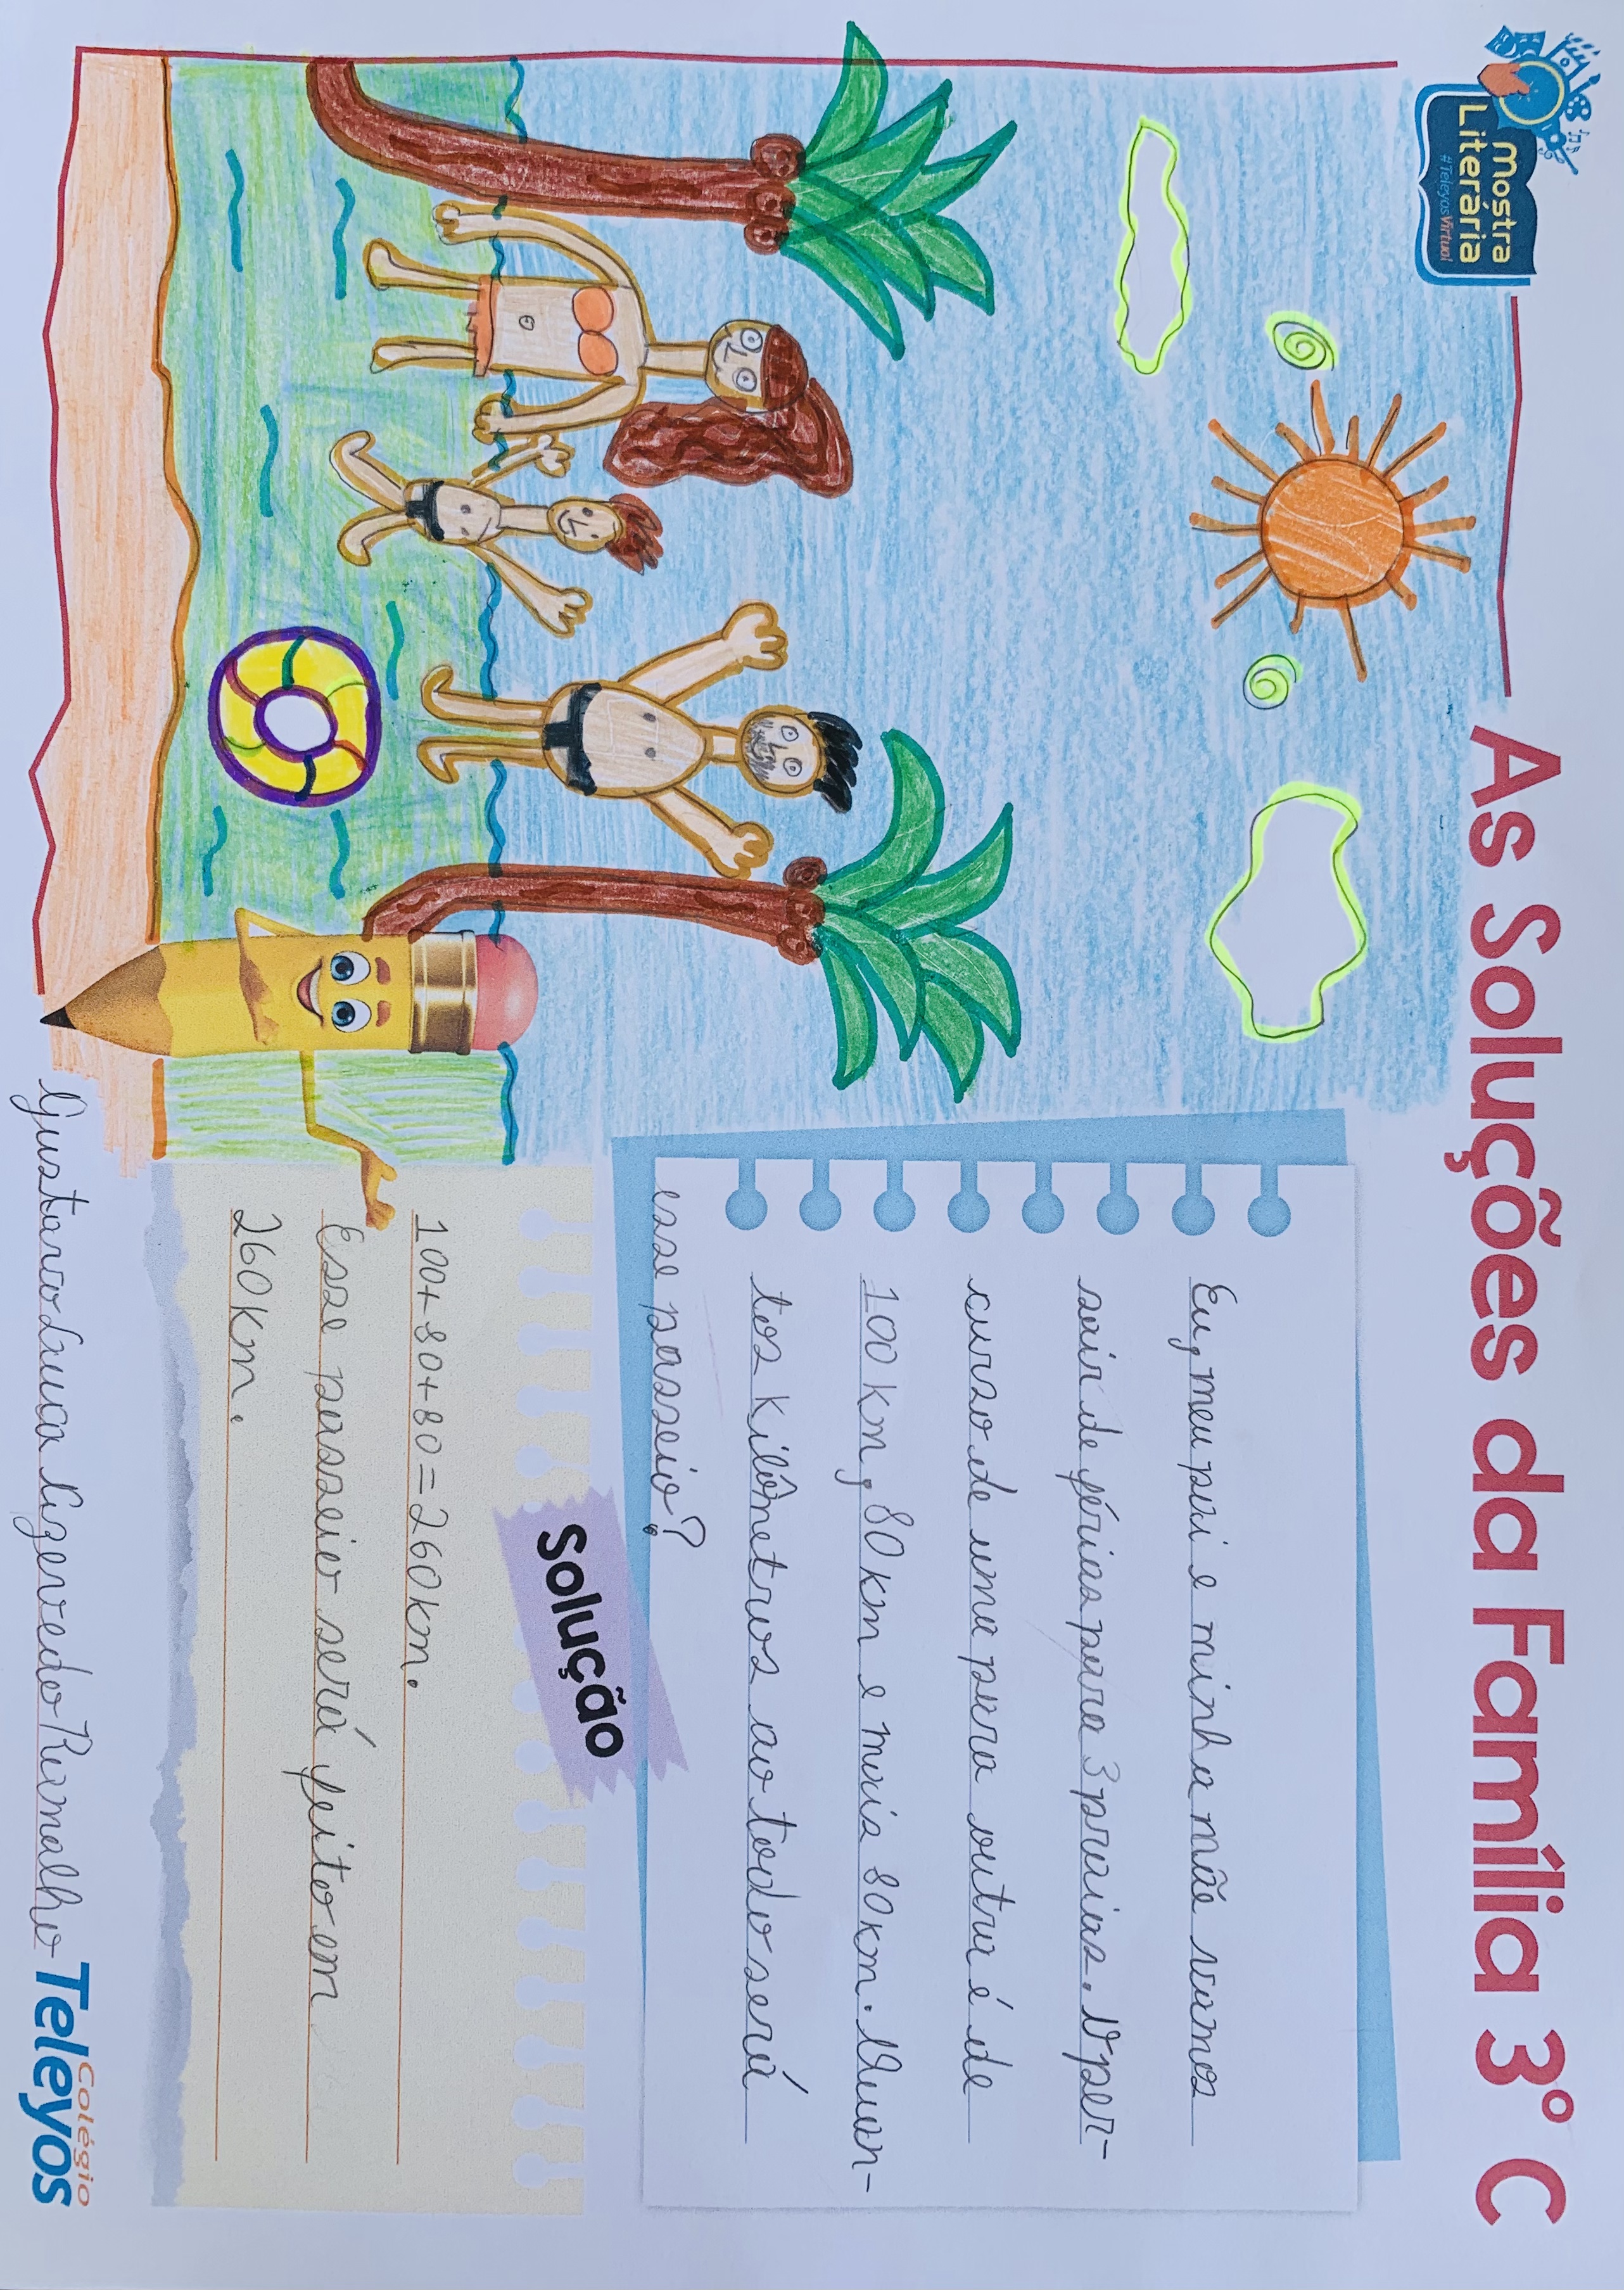 Mostra
Literária
#TeleyosVirtual
As Soluções da Família 3º C
Eu, meu pai e minha mãe vamos
sair de férias para 3 praias. O per-
curso de uma para outra é de
100 km, 80 km e mais 80 km. Quan-
tos kilômetros ao todo será
esse passeio?
Solução
100+80+80=260km.
Esse passeio será feito em
260km.
Gustavo Luca Azevedo Ramalho
Colégio
Teleyos